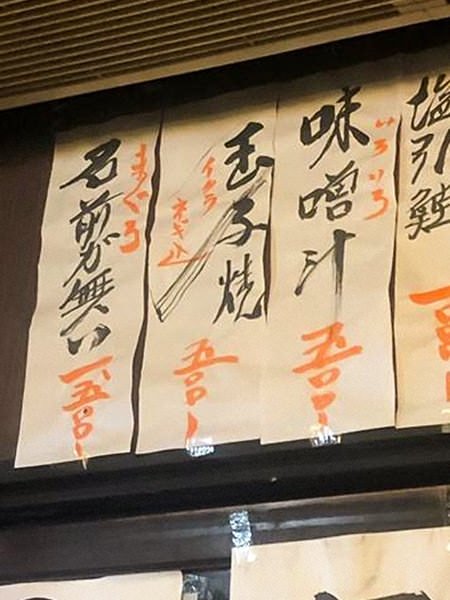 塩引鮭
いろいろ
味噌汁
五〇〇-
玉子焼
イクラ
ネギ込
五〇〇-
まぐろ
名前が無い
一、五〇〇-